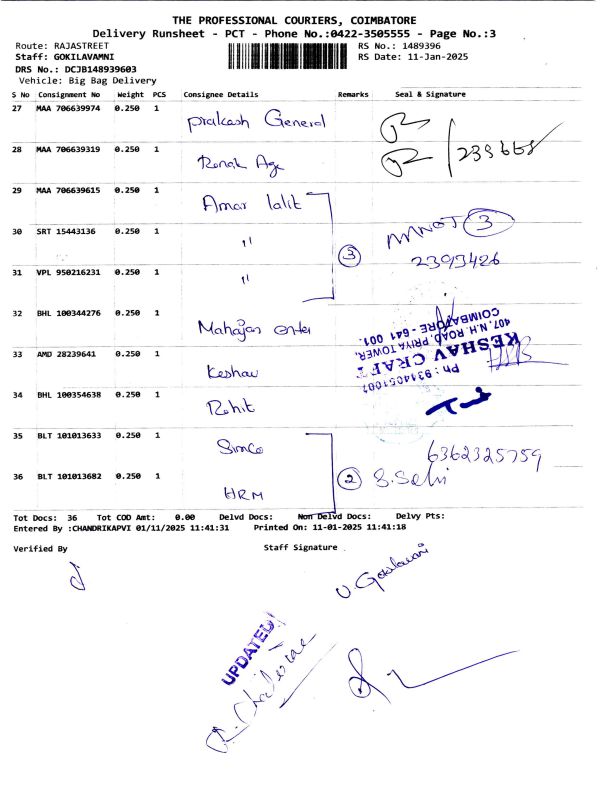 THE PROFESSIONAL COURIERS, COIMBATORE
Delivery Runsheet - PCT - Phone No.:0422-3505555 - Page No.:3
Route: RAJASTREET RS No.: 1489396
Staff: GOKILAVAMNI RS Date: 11-Jan-2025
DRS No.: DCJB148939603
Vehicle: Big Bag Delivery
S No Consignment No Weight PCS Consignee Details Remarks Seal & Signature
27 MAA 706639974 0.250 1 Prakash General
28 MAA 706639319 0.250 1 Ronak Age 239668
29 MAA 706639615 0.250 1 Amar lalit
30 SRT 15443136 0.250 1 " 3
31 VPL 950216231 0.250 1 " 3 2393426
32 BHL 100344276 0.250 1 Mahajan enter
33 AMD 28239641 0.250 1 Keshav
KESHAV CRAFT
407, N.H. ROAD, PRIYA TOWER,
COIMBATORE - 641 001.
34 BHL 100354638 0.250 1 Rohit
35 BLT 101013633 0.250 1 Simco 6362325759
36 BLT 101013682 0.250 1 HRM 2 S.Selvi
Tot Docs: 36 Tot COD Amt: 0.00 Delvd Docs: Non Delvd Docs: Delvy Pts:
Entered By :CHANDRIKAPVI 01/11/2025 11:41:31 Printed On: 11-01-2025 11:41:18
Verified By Staff Signature
UPDATED!